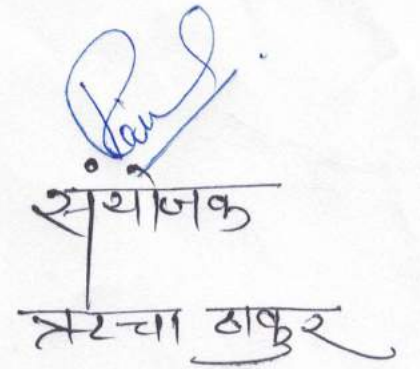 संयोजक
ऋचा ठाकुर